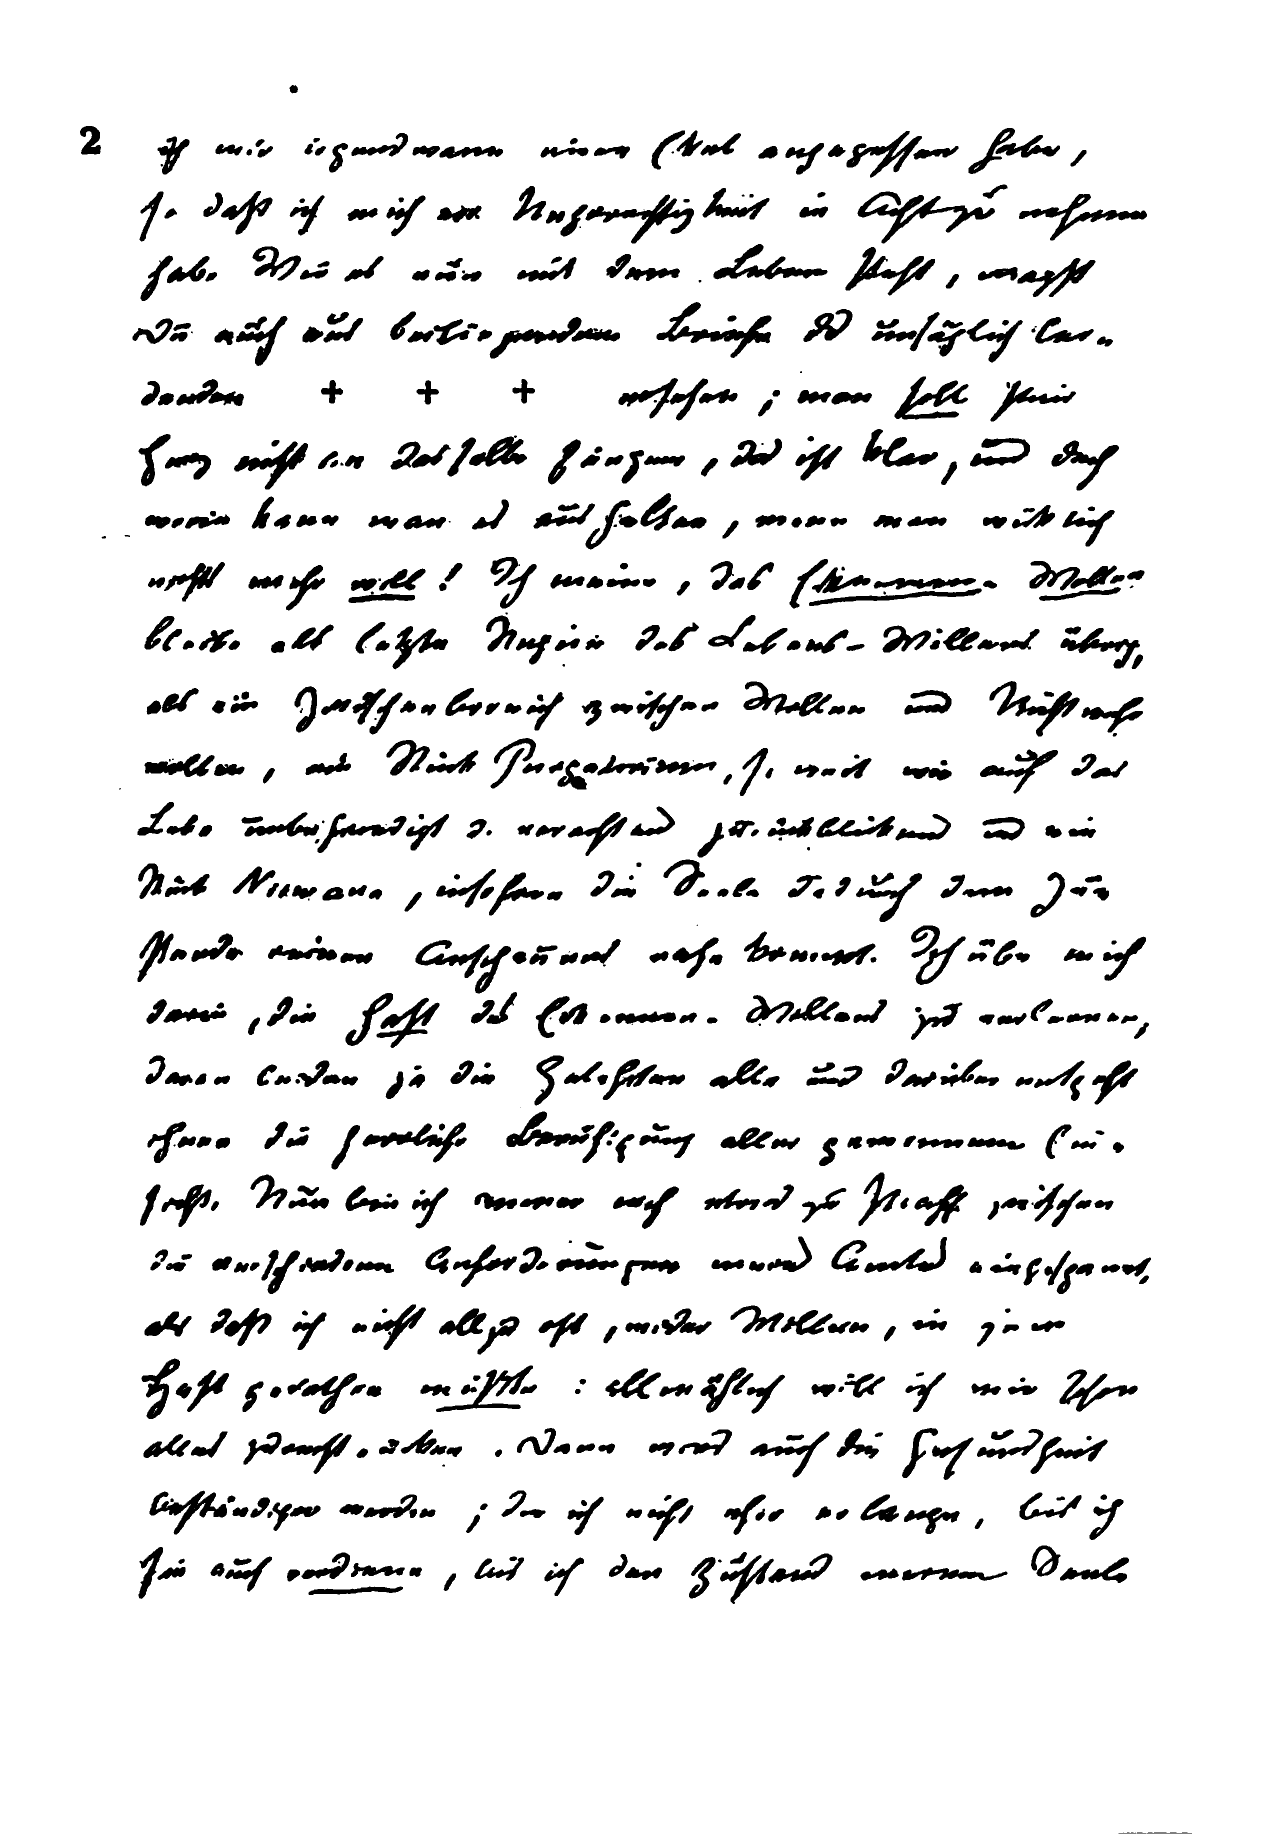 2 ich mir irgendwann einen Ekel angegessen habe,
so daß ich mich vor Ungerechtigkeit in Acht zu nehmen
habe. Wie es nun mit dem Leben steht, magst
Du auch aus beiliegendem Briefe des unsäglich lei-
denden + + + ersehen; man soll sein
Herz nicht an dasselbe hängen, das ist klar, und doch
worin kann man es aushalten, wenn man wirklich
nichts mehr will! Ich meine, das Erkennen-Wollen
bleibe als letzte Region des Lebens-Willens übrig,
als ein Zwischenbereich zwischen Wollen und Nichtmehr
wollen, ein Stück Purgatorium, so weit wir auf das
Leben unbefriedigt u. verachtend zurückblickend und ein
Stück Nirwana, insofern die Seele dadurch dem Zu-
stande reinen Anschauens nahe kommt. Ich übe mich
darin, die Hast des Erkennen-Wollens zu verlernen,
daran leiden ja die Gelehrten alle und darüber entgeht
ihnen die herrliche Beruhigung aller gewonnenen Ein-
sicht. Nun bin ich immer noch etwas zu straff zwischen
die verschiedenen Anforderungen meines Amtes eingespannt,
als daß ich nicht allzu oft, wider Willen, in jene
Hast gerathen müßte: allmählich will ich mir schon
alles zurechtrücken. Dann wird auch die Gesundheit
beständiger werden; die ich nicht eher erlange, bis ich
sie auch verdiene, bis ich den Zustand meiner Seele